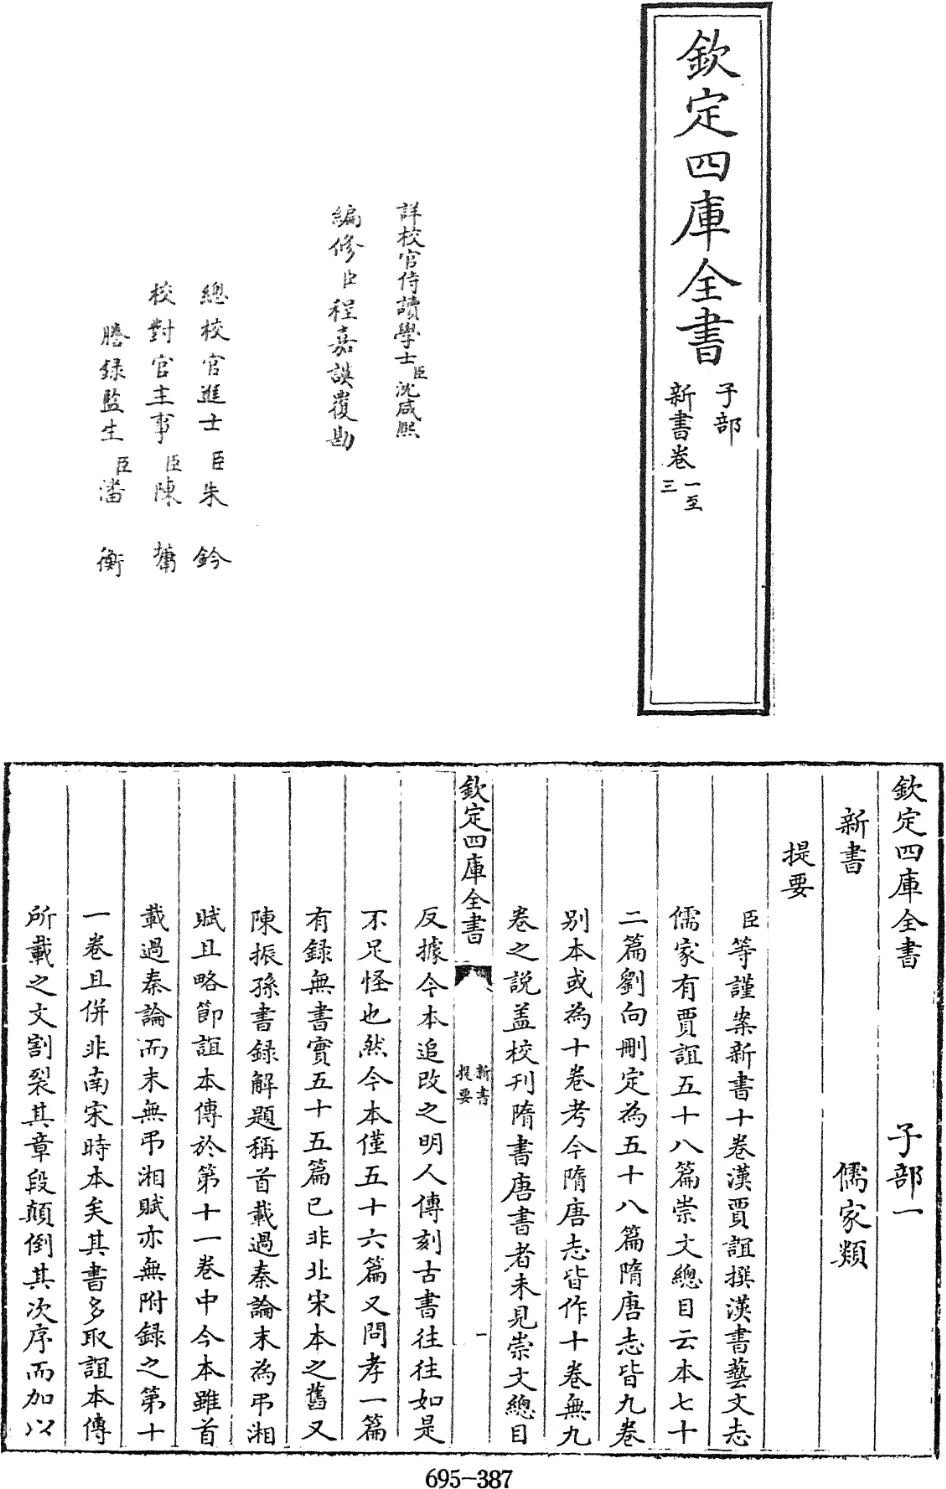 欽定四庫全書
子部
新書卷一至三
詳校官侍讀學士臣沈咸熙
編修臣程嘉謨覆勘
總校官進士臣朱鈐
校對官主事臣陳墉
謄録監生臣潘衡
欽定四庫全書 子部一
新書 儒家類
提要
臣等謹案新書十卷漢賈誼撰漢書藝文志
儒家有賈誼五十八篇崇文總目云本七十
二篇劉向刪定為五十八篇隋唐志皆九卷
别本或為十卷考今隋唐志皆作十卷無九
卷之說盖校刋隋書唐書者未見崇文總目
欽定四庫全書
新書
提要
一
反據今本追改之明人傳刻古書往往如是
不足怪也然今本僅五十六篇又問孝一篇
有録無書實五十五篇已非北宋本之舊又
陳振孫書録解題稱首載過秦論末為弔湘
賦且略節誼本傳於第十一卷中今本雖首
載過秦論而末無弔湘賦亦無附録之第十
一卷且併非南宋時本矣其書多取誼本傳
所載之文割裂其章段顛倒其次序而加以
695-387